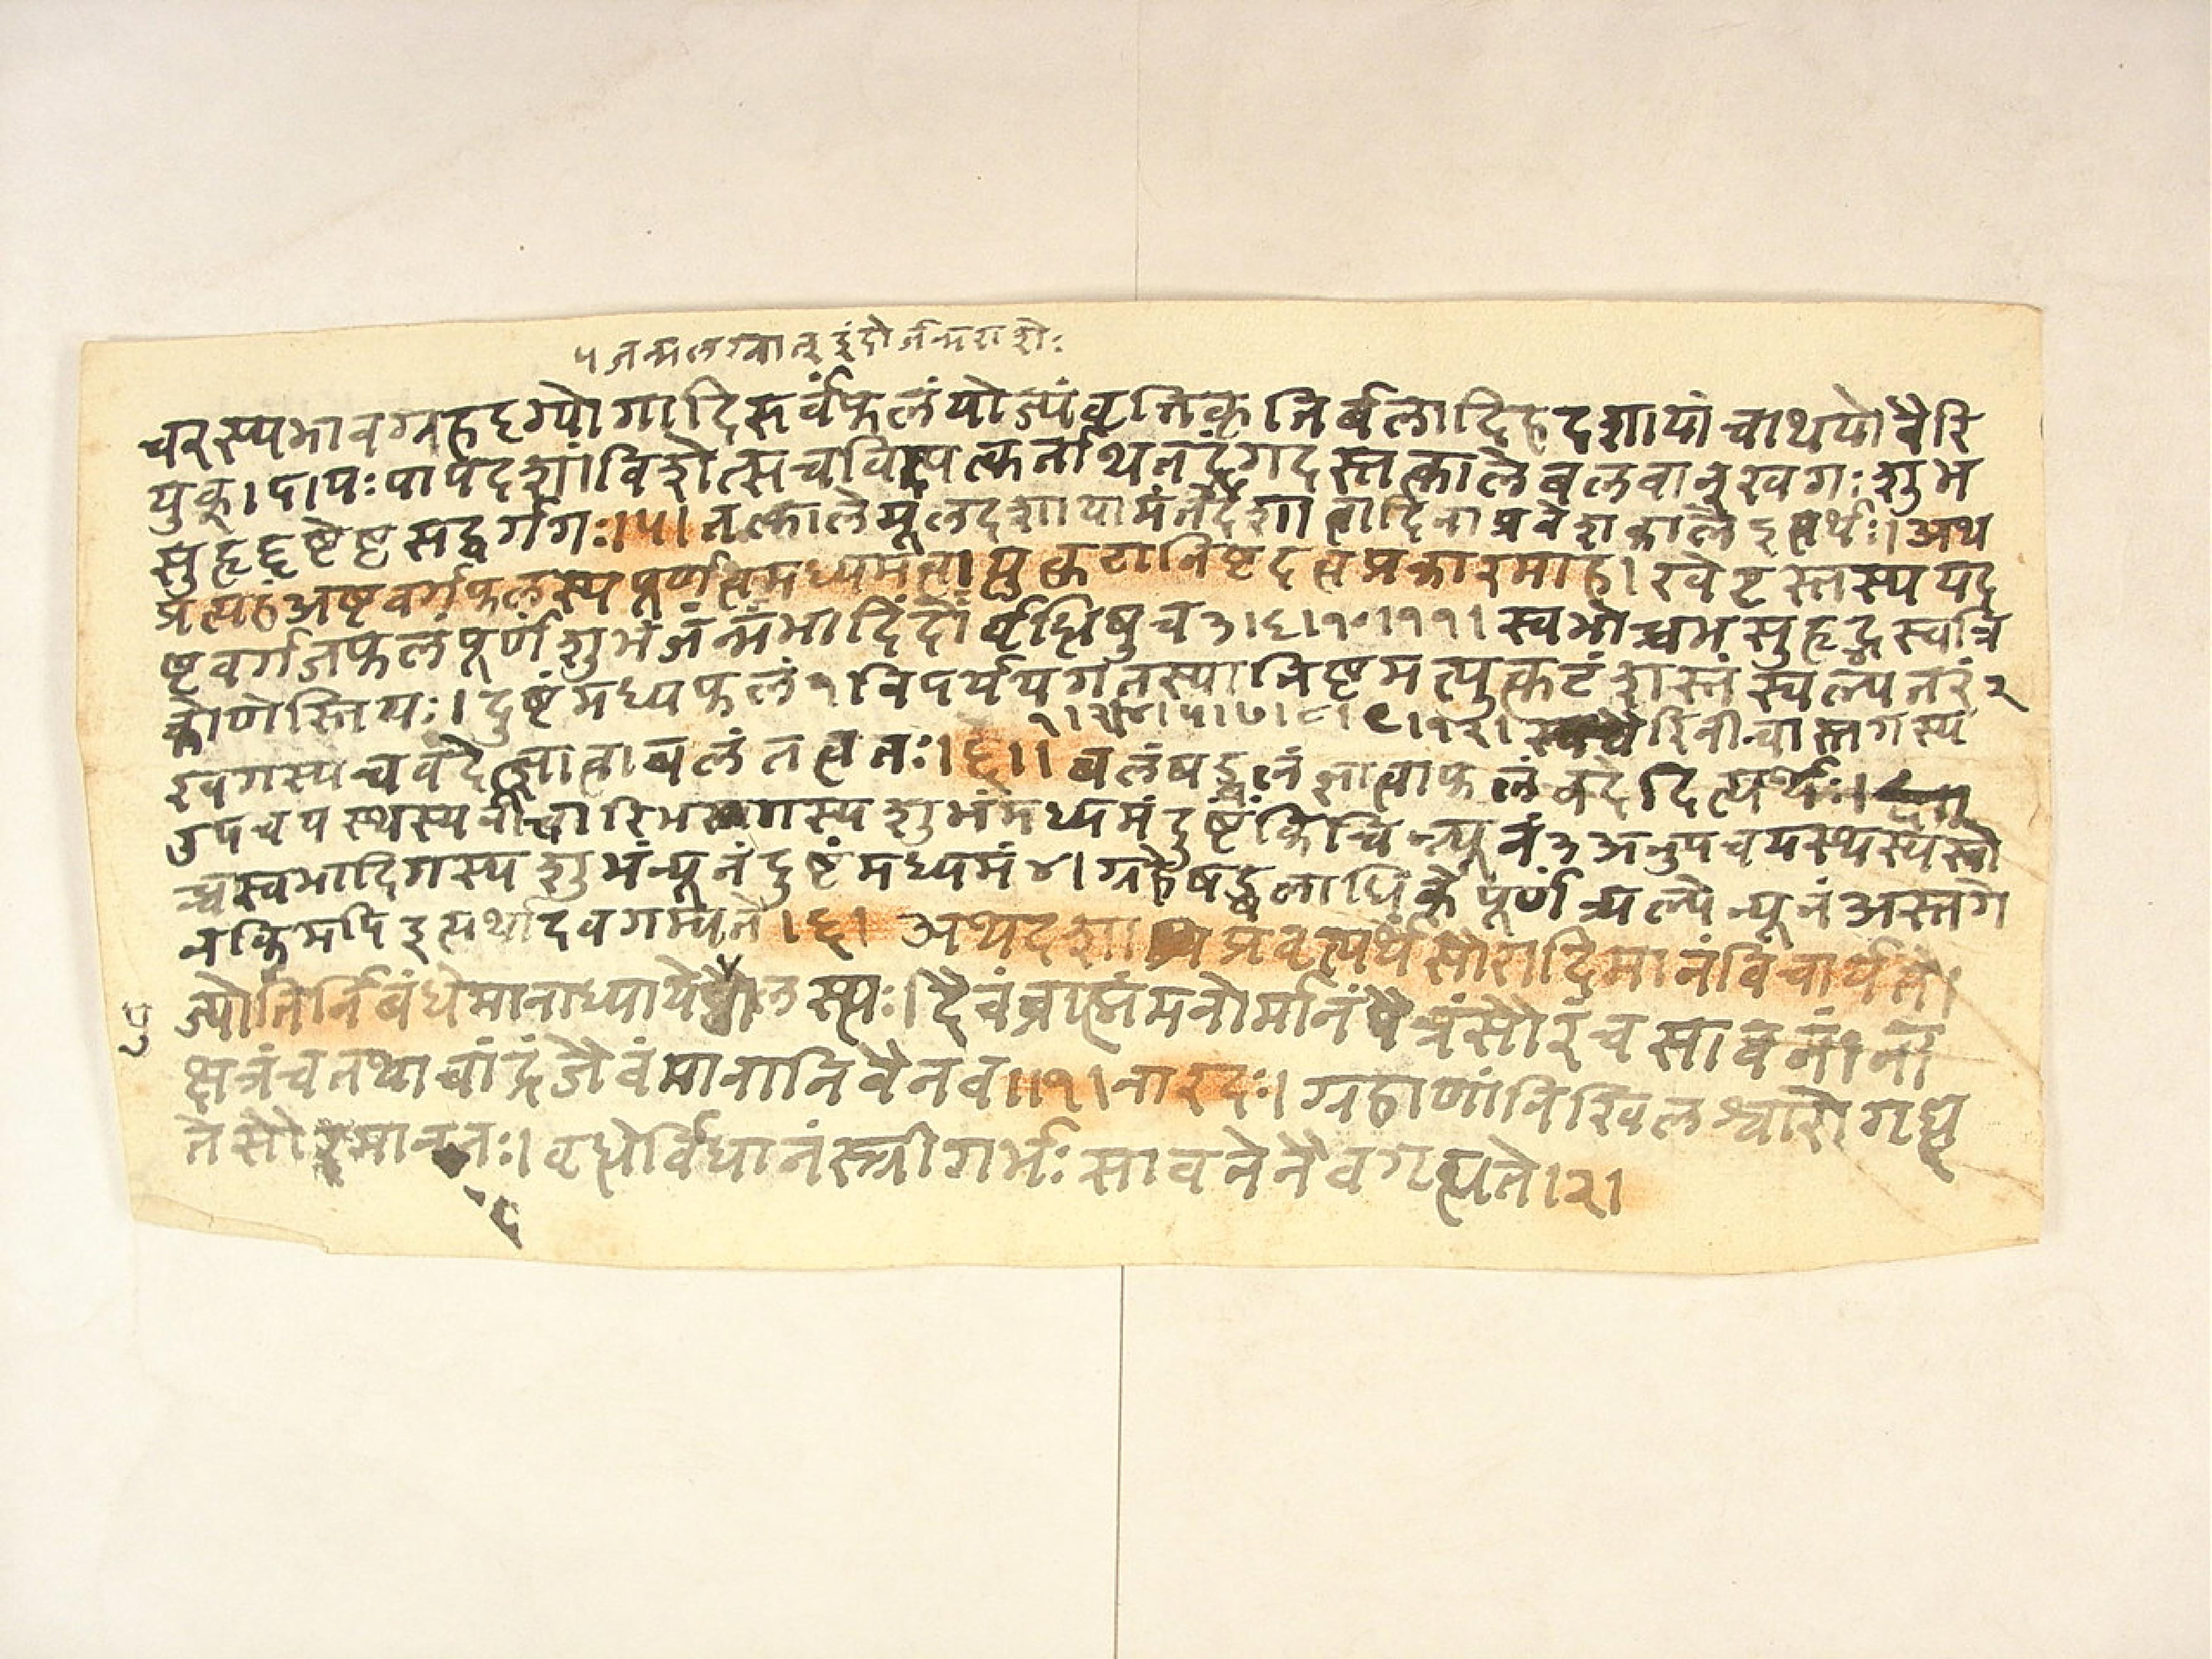 ५ जन्मलग्नात् इंदोर्जन्मराशेः
चरस्यभावग्रहदृग्योगादिसर्वंफलंयोज्यंवृत्तिकृनिर्बलादिहदशायांचाथयोवैरि
युक्।पापःपापदशांविशेत्सचविपत्कर्ताथतद्रंगदस्तत्कालेबलवान्खगःशुभ
सुहृद्दृष्टेष्टसद्वर्गगः।५।तत्कालेमूलदशायामंतर्दशात्वादिनाप्रवेशकालेइत्यर्थः।अथ
प्रत्यहंअष्टवर्गफलस्यपूर्णत्वमध्यमंत्वा निष्टदत्वप्रकारमाह।खेटस्तस्ययद
ष्टवर्गजफलंपूर्णंशुभंजन्मभादिंदोर्वृद्धिषुच३।६।१०।११।स्वभोच्चभसुहृद्भस्वत्रि
कोणेस्तियः।दुष्टंमध्यफलं१विपर्ययगतस्यानिष्टमत्युत्कटंशस्तंस्वल्पतरं२
१।२।४।५।७।८।९।१२। वैरिनीचास्तगस्य
खगस्यचवदेज्ज्ञात्वाबलंतत्वतः।६।।बलंषड्बलंज्ञात्वाफलंवदेदित्यर्थः।
उपचयस्थस्यनीचारिभस्तगस्यशुभंमध्यमंदुष्टंकिंचिन्न्यूनं३अनुपचयस्थस्यस्वो
च्चस्वभादिगस्यशुभंन्यूनंदुष्टंमध्यमं४।ग्रहेषड्बलाधिकेपूर्णंअल्पेन्यूनंअस्तगे
नकिमपिइत्यर्थादवगम्यते।६।अथदशा प्रवृत्यर्थंसौरादिमानंविचार्यते।
ज्योतिर्निबंधेमानाध्यायेपौलस्त्यः।दैवंब्राह्मंमनोर्मानंपैत्रंसौरंचसावनं।ना
क्षत्रंचतथाचांद्रंजैवंमानानिवैनव।।१।नारदः।ग्रहाणांनिखिलश्चारोगृह्य
तेसौरमानतः।वृष्टेर्विधानंस्त्रीगर्भःसावनेनैवगृह्यते।२।